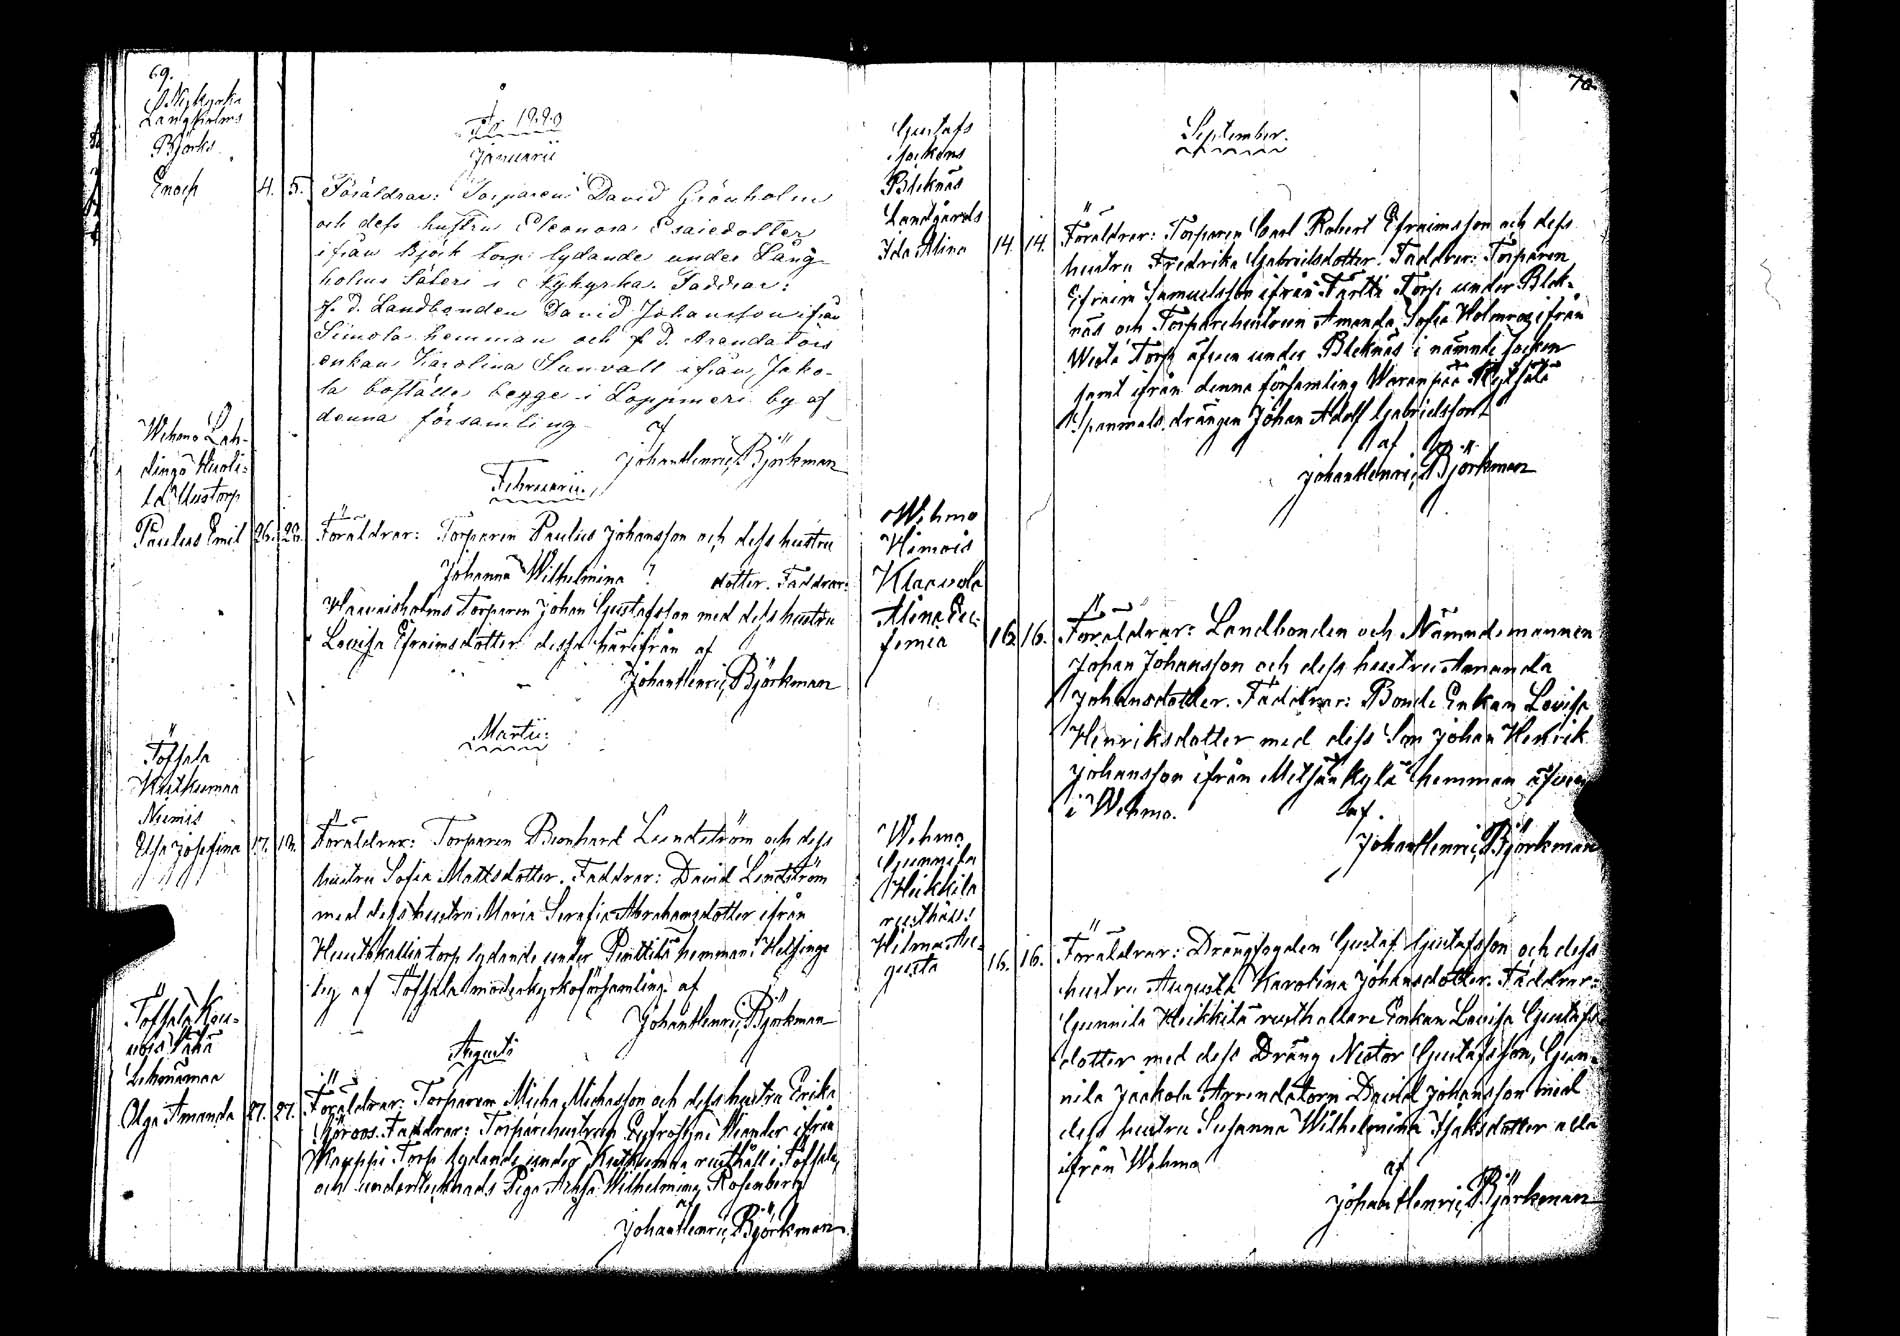 69.
Nykyrka
Långholms
Björks
Enoch 4. 5.
År 1890
Januarii
Föräldrar: Torparen David Grönholm
och dess hustru Eleonora Esaiedotter
ifrån Björk torp lydande under Lång-
holms Säteri i Nykyrka. Faddrar:
f. d. Landbonden David Johansson ifrån
Simola hemman och f. d. Arendators
enkan Karolina Sunvall ifrån Jako-
la boställe begge i Loppmeri by af
denna församling
af
Johan Henric Björkman
Februarii.
Wehmo Lah-
dingo
torp
Paulus Emil 26. 28.
Föräldrar: Torparen Paulus Johansson och dess hustru
Johanna Wilhelmina ? dotter. Faddrar:
Haunisholms Torparen Johan Gustafsson med dess hustru
Lovisa Efraimsdotter dessa härifrån af
Johan Henric Björkman
Martii.
Töfsala
Kustkumaa
Niemis
Elsa Josefina 17. 18.
Föräldrar: Torparen Bernhard Lundström och dess
hustru Sofia Mattsdotter. Faddrar: David Lindström
med dess hustru Maria Serafia Abrahamsdotter ifrån
torp lydande under Penttilä hemman i Helsinge
by af Töfsala moderkyrkoförsamling af
Johan Henric Björkman
Augusti
Töfsala
Olga Amanda 27. 27.
Föräldrar: Torparen Micha Michasson och dess hustru Erika
Köroos. Faddrar: Torparehustrun Eufrosyne Wiander ifrån
Kauppi Torp lydande under Kustkumaa rusthåll i Töfsala,
och undertecknads Piga Wilhelmina Rosenberg
af
Johan Henric Björkman
70.
September.
Gustafs
Sockens
Bleknäs
Landgårds
Ida Alina 14. 14.
Föräldrar: Torparen Carl Robert Efraimsson och dess
hustru Fredrika Gabrielsdotter. Faddrar: Torparen
Efraim Samuelsson ifrån Torp under Blek-
näs och Torparehustrun Amanda Sofia Holmroos ifrån
Torp äfven under Bleknäs i nämnde socken
samt ifrån denna församling
drängen Johan Adolf Gabrielsson
af
Johan Henric Björkman
Wehmo
Himois
Klaavola
Alina Eu-
femia 16. 16.
Föräldrar: Landbonden och Nämndemannen
Johan Johansson och dess hustru Amanda
Johansdotter. Faddrar: Bonde Enkan Lovisa
Henriksdotter med dess Son Johan Henrik
Johansson ifrån Metsänkylä hemman äfven
i Wehmo. af.
Johan Henric Björkman
Wehmo
Gunnila
Heikkilä
rusthåll
Hilma Au-
gusta 16. 16.
Föräldrar: Drängfogden Gustaf Gustafsson och dess
hustru Augusta Karolina Johansdotter. Faddrar:
Gunnila Heikkilä rusthållare Enkan Lovisa Gustafs
dotter med dess Dräng Nestor Gustafsson, Gun-
nila Jaakola Arrendatorn David Johansson med
dess hustru Susanna Wilhelmina Isaksdotter alla
ifrån Wehmo
af
Johan Henric Björkman